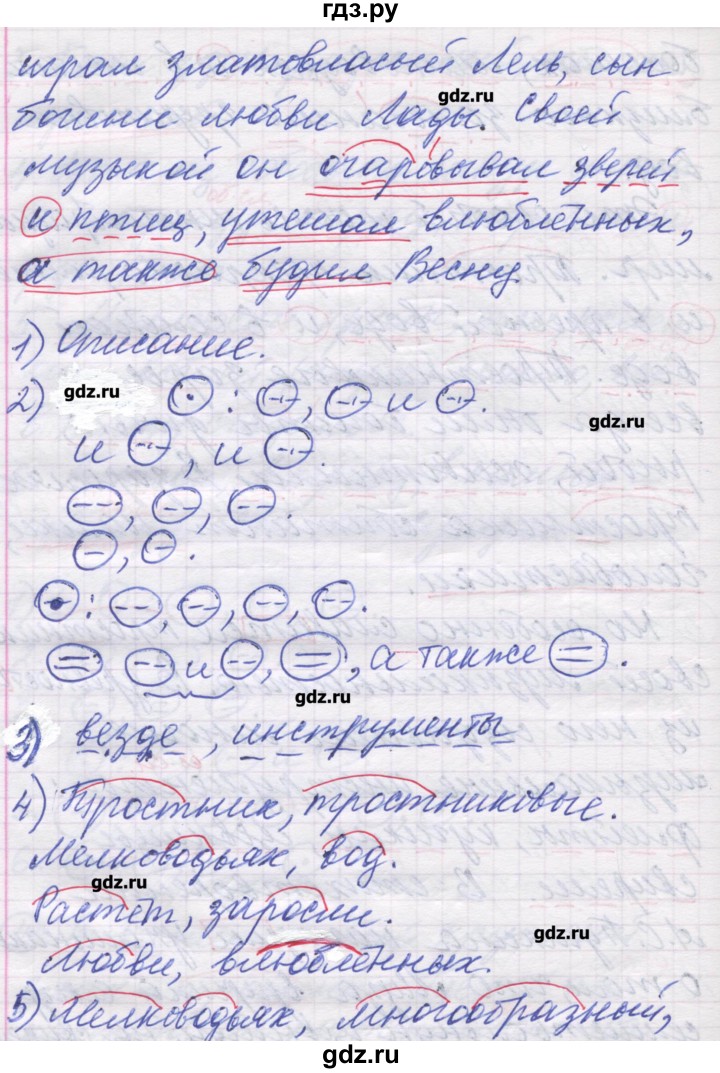 гдз.ру
играл златовласый Лель, сын
gdz.ru
богини любви Лады. Своей
музыкой он очаровывал зверей
и птиц, утешал влюблённых,
а также будил Весну.
1) Описание.
2) gdz.ru : , и .
gdz.ru
и , и .
, , .
, .
: , , , .
и , , а также .
gdz.ru
3) везде, инструменты
4) Тростник, тростниковые.
Мелководьях, вод.
gdz.ru
Растёт, заросли.
gdz.ru
Любви, влюблённых.
5) Мелководьях, многообразный,
gdz.ru